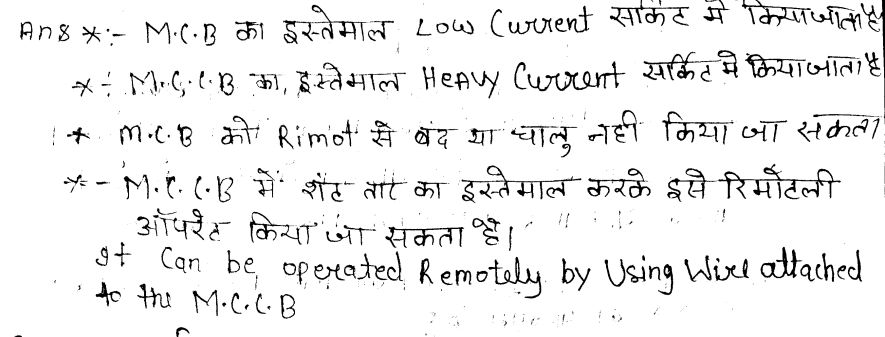 Ans *:- M.C.B का इस्तेमाल Low Current सर्किट में किया जाता है
*:- M.C.C.B का, इस्तेमाल HEAVY Current सर्किट मे किया जाता है
* M.C.B को Rimot से बंद या चालु नही किया जा सकता
*:- M.C.C.B में शंट तार का इस्तेमाल करके इसे रिमोटली
ऑपरेट किया जा सकता है।
It Can be operated Remotely by Using Wire attached
to the M.C.C.B